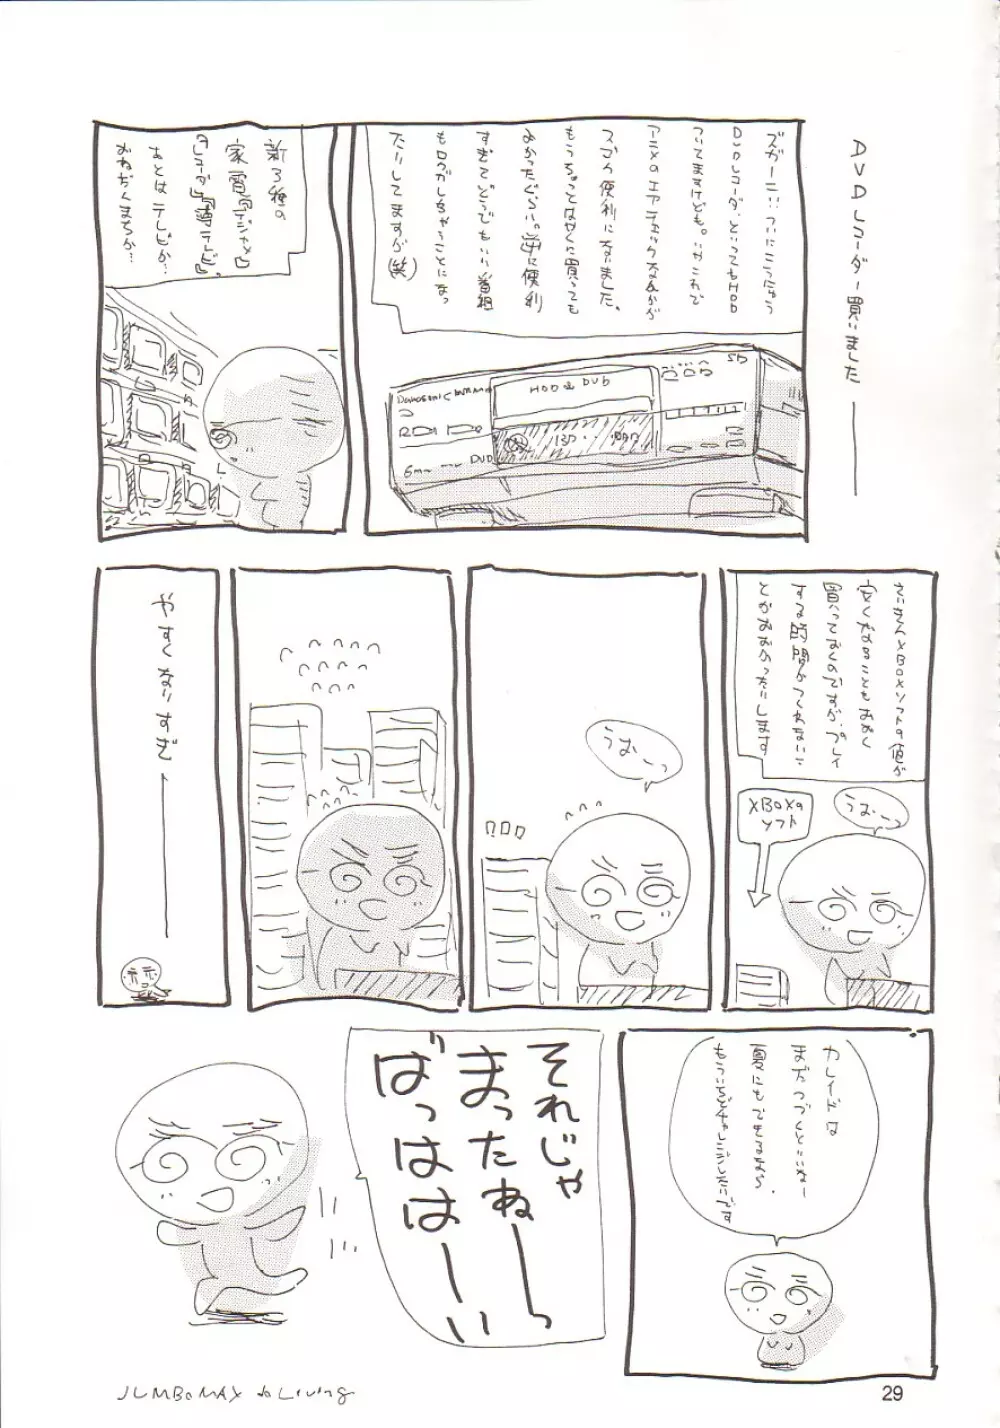 DVDレコーダー買いました――
ズガーン!!ついにこうにゅう
DVDレコーダ。といってもHDD
ついてますけども。いやこれで
アニメのエアチェックなんかが
スゴク便利になりました。
もうちょっとはやくに買っても
よかったぐらい。逆に便利
すぎてどうでもいい番組
もロクガしちゃうことになっ
たりしてますが(笑)
HDD & DVD
SD
DVD
新3種の
家電『デジカメ』
『レコーダ』『薄テレビ』。
あとは テレビか…
おねだんまちか…
さいきんXBOXソフトの値が
安くなることもおおく
買っておくのですが、プレイ
する時間がつくれないこ
とがおおかったりします
うおーっ
XBOXの
ソフト
うおーっ
やすくなりすぎ――
カレイドは
まだつづくといいねー
夏にもできるなら、
もういちどチャレンジしたいです
それじゃ
まったねーーっ
ばっはは ーい
JUMBOMAX to Living
29